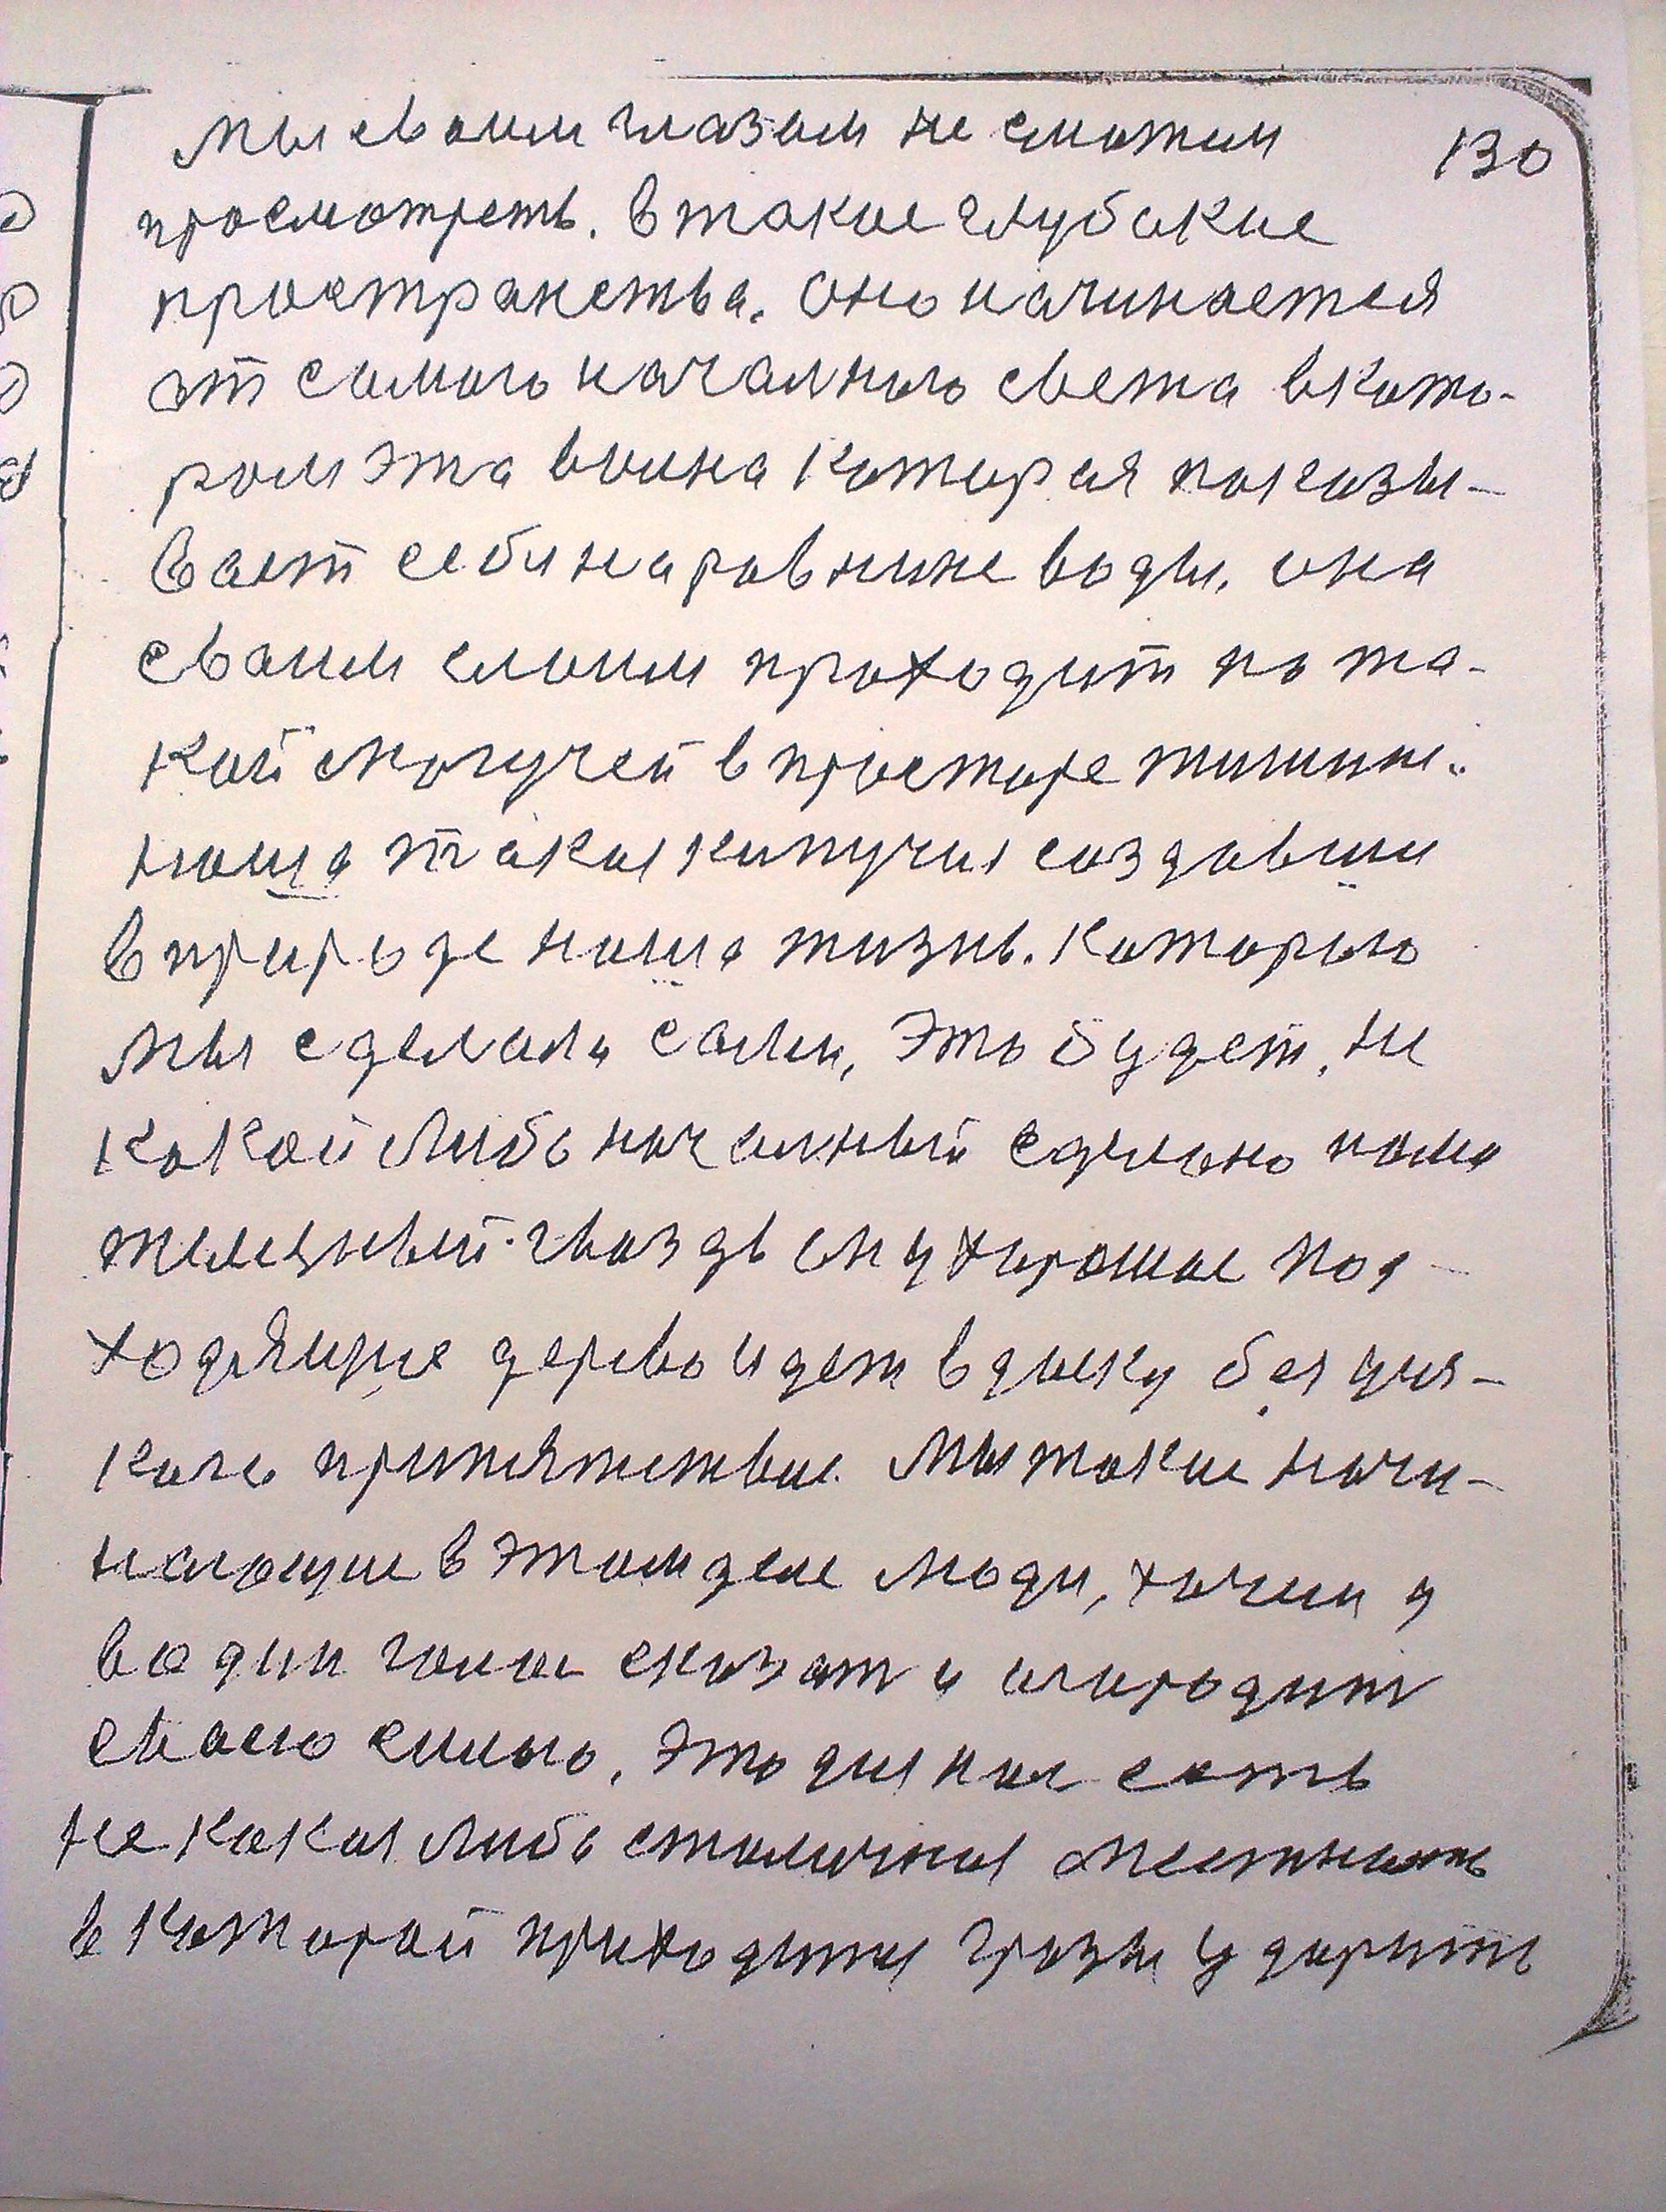 мы своим глазом не сможем 130
просмотреть. в такие глубокие
пространства. Оно начинается
от самого начального света в кото-
ром эта волна которая показы-
вает себя на равнине воды. она
своим слоим проходит по та-
кой могучей в просторе тишины.
наша такая кипучия создавши
в природе наша жизнь. которую
мы сделали сами, это будет. не
какой либо начальный сделано нами
железный гвоздь он у хорошие под-
ходящие дерево идет в доску без уся-
кого припятствие. Мы такие начи-
нающие в этом деле люди, хочим у
в один голос сказат и огородит
свою силою. это для нас есть
не какая либо столичная местность
в которой приходится грозы ударить